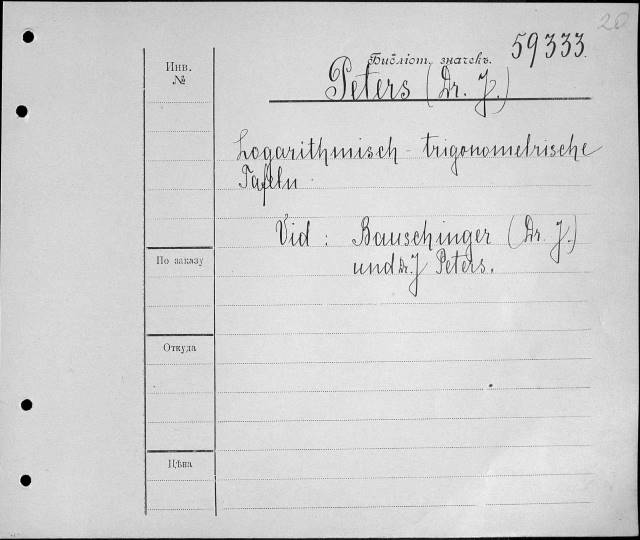 20
59333.
Библіот. значекъ.
Инв.
№
Peters (Dr. J.)
Logarithmisch-trigonometrische
Tafeln.
Vid: Bauschinger (Dr. J.)
und Dr. J Peters.
По заказу
Откуда
Цѣна